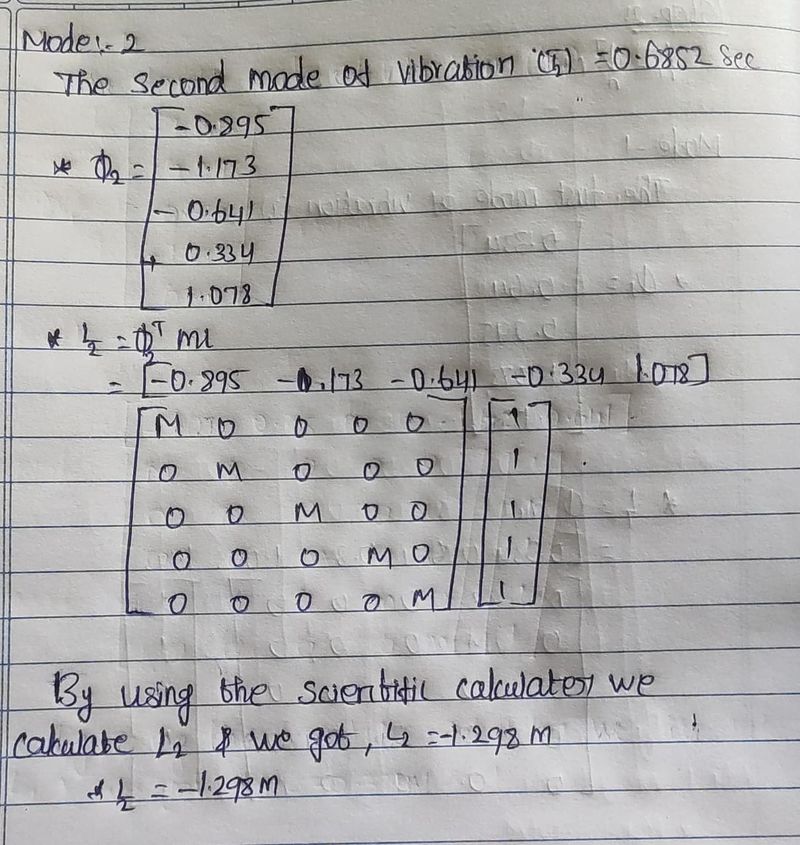 Mode:- 2
The Second mode of vibration (T₂) = 0.6852 Sec
* Φ₂ = [-0.895
-1.173
-0.641
0.334
1.078]
* L₂ = Φ₂ᵀ ml
= [-0.895 -1.173 -0.641 -0.334 1.078]
[M 0 0 0 0] [1]
0 M 0 0 0 1
0 0 M 0 0 1
0 0 0 M 0 1
0 0 0 0 M 1
By using the scientific calculator we
calculate L₂ & we got, L₂ = -1.298 M
* L₂ = -1.298 M